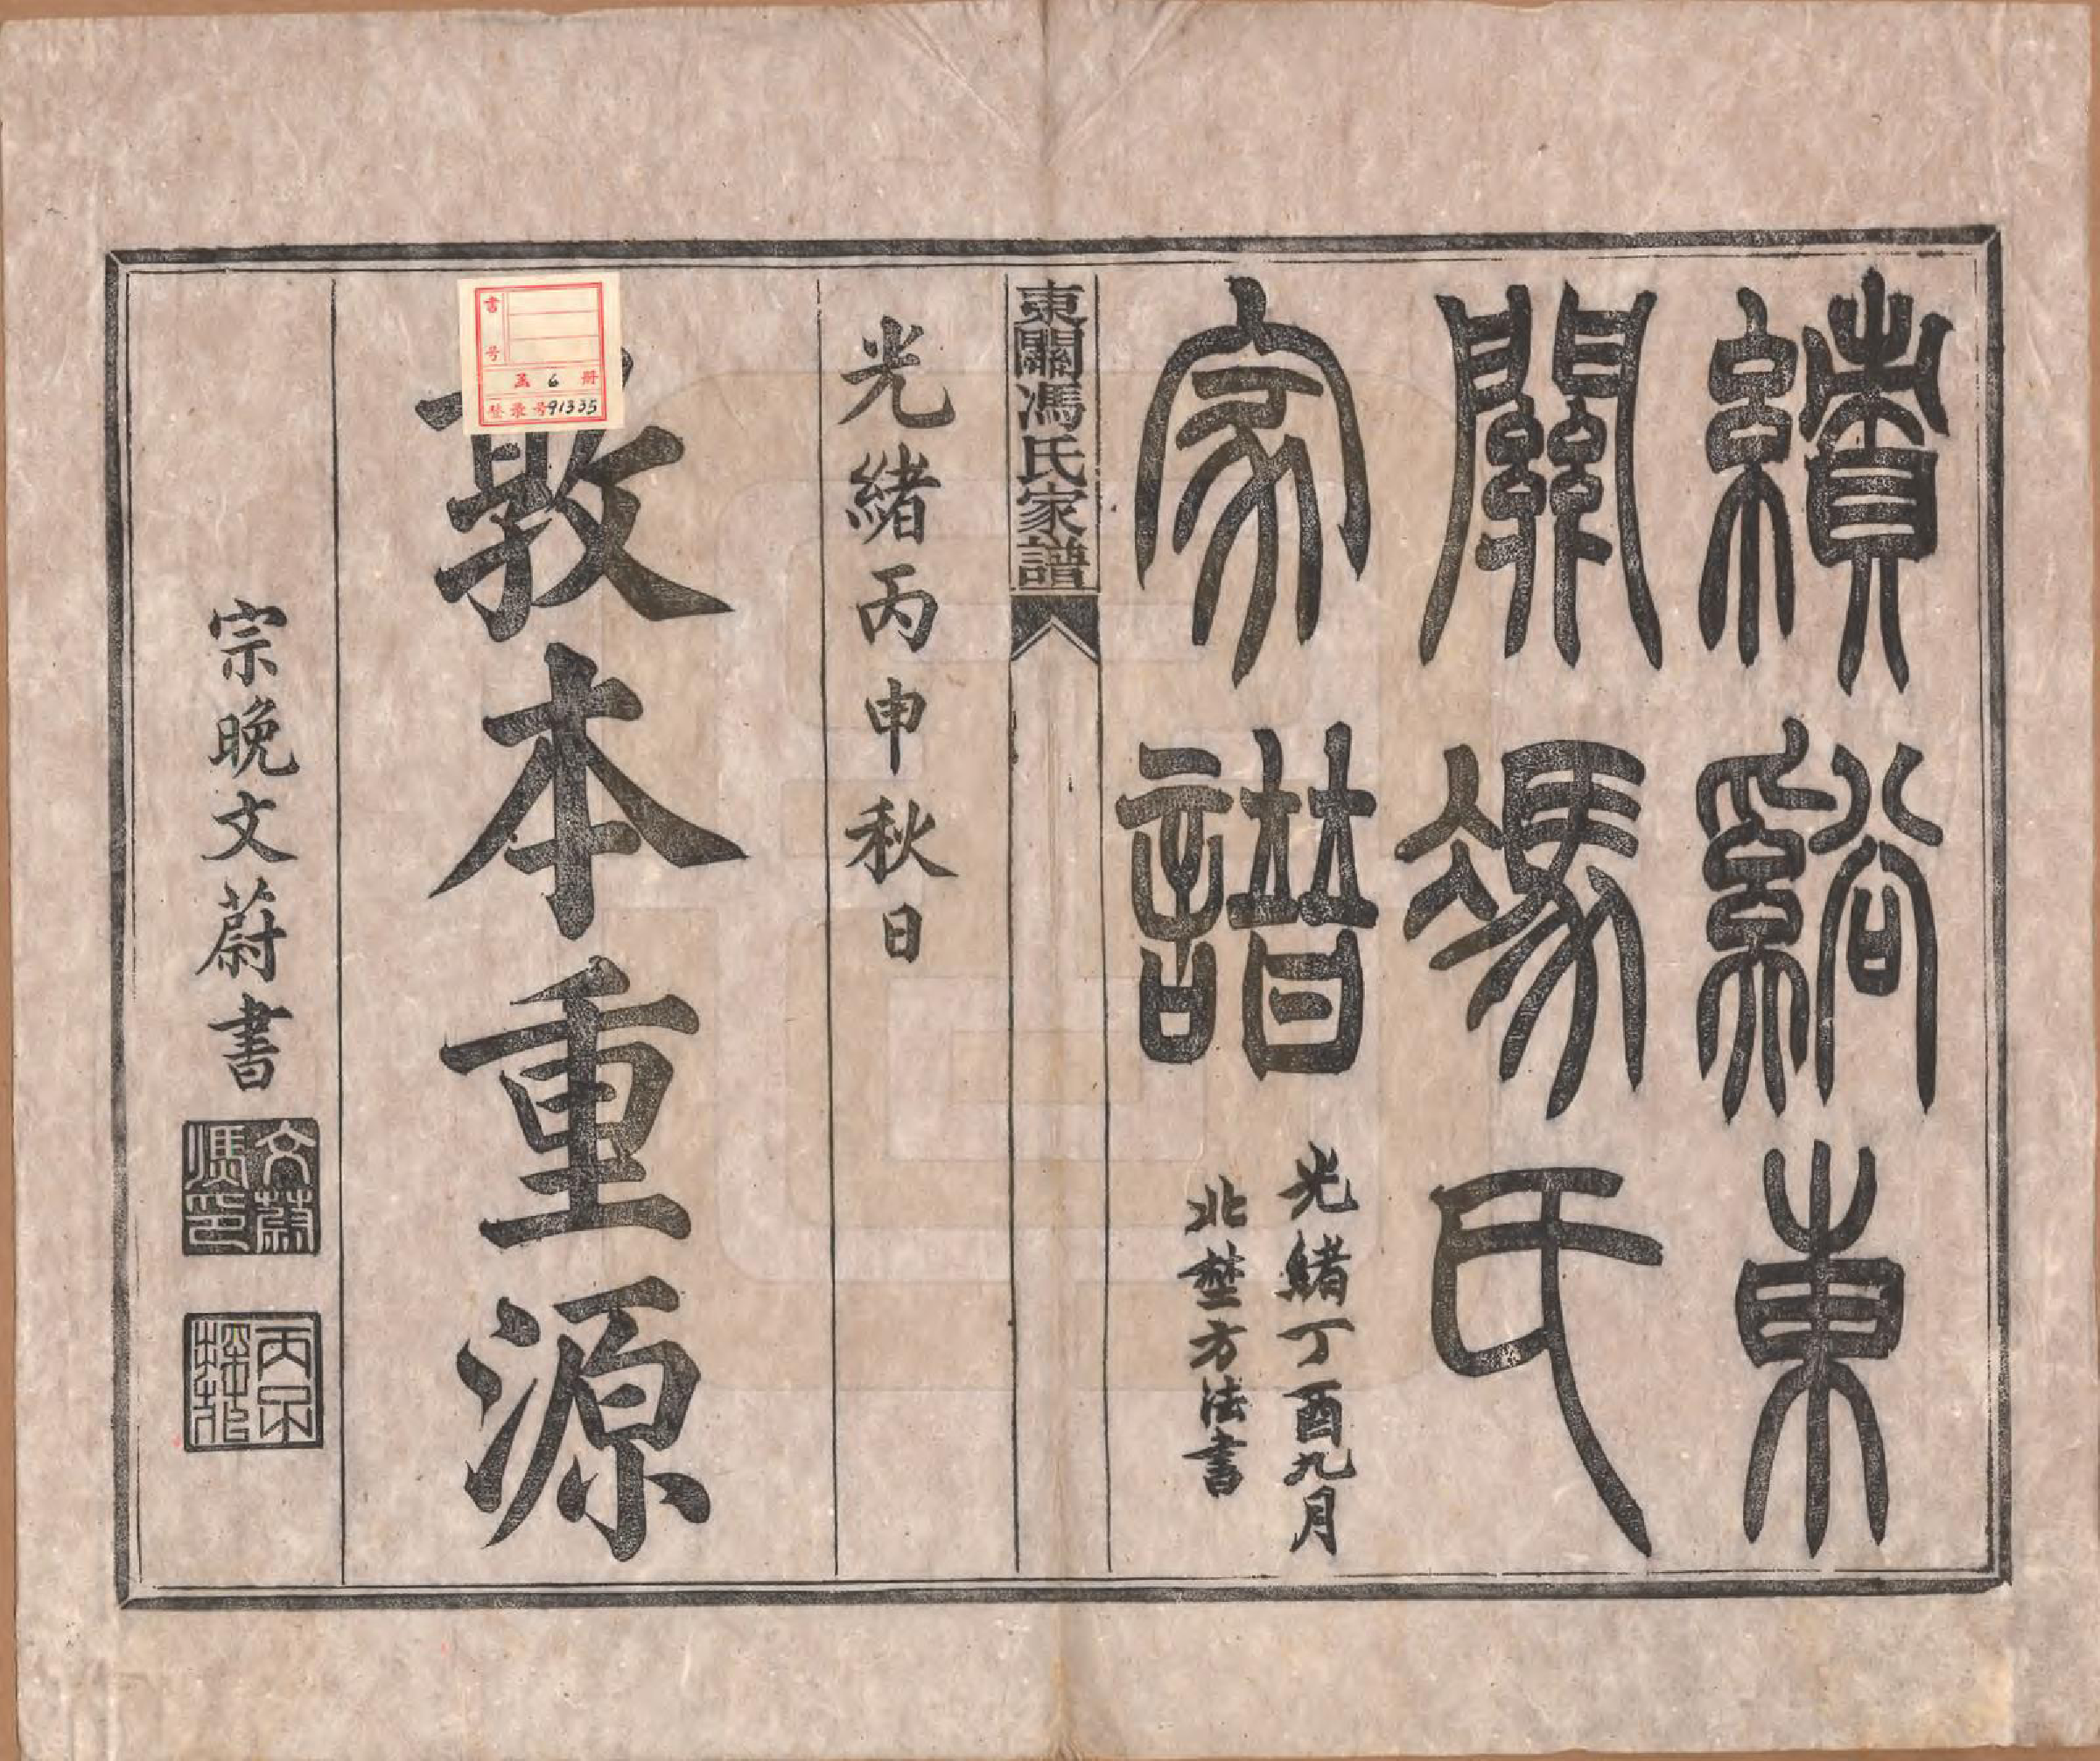 績谿東
關馮氏
家譜
光緒丁酉九月
北埜方法書
東關馮氏家譜
光緒丙申秋日
敦本重源
宗晚文蔚書
文蔚
馮印
書号
函 6 册
登录号 91335